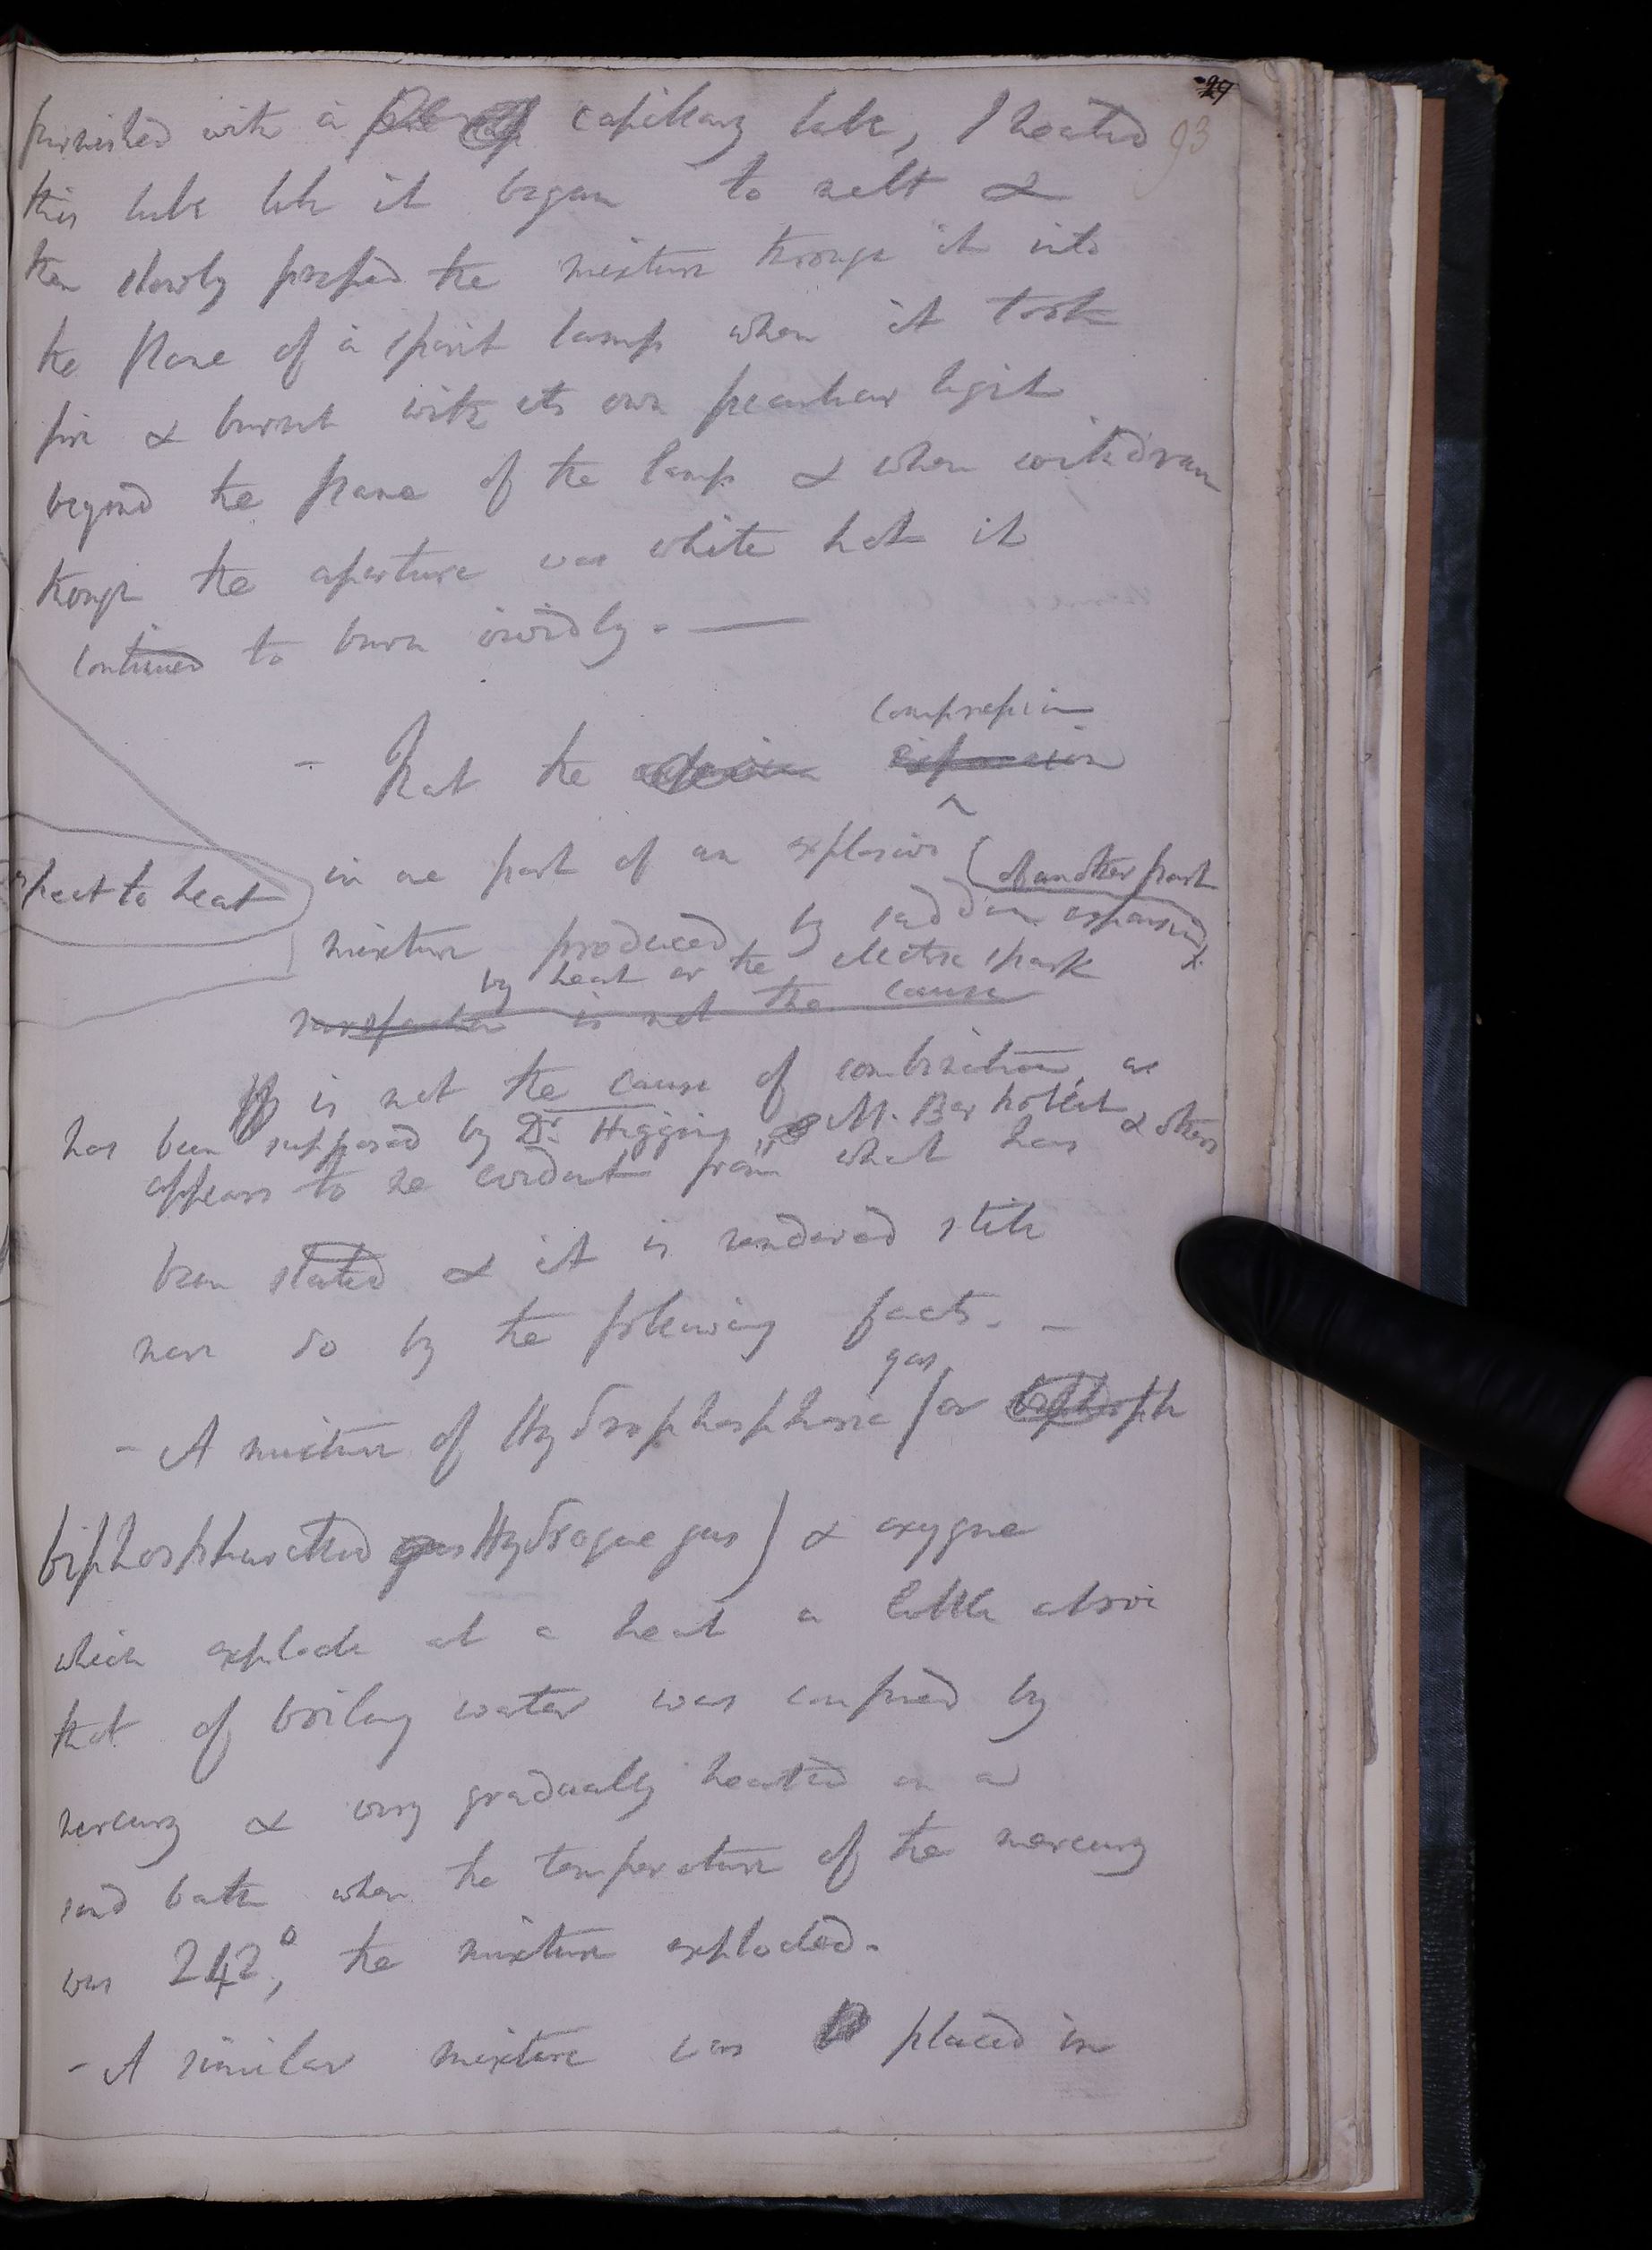 29
93
furnished with a capillary tube, I heated
this tube till it began to melt &
then slowly pressed the mixture through it into
the flame of a spirit lamp when it took
fire & burnt with its own peculiar light
beyond the flame of the lamp & when withdrawn
though the aperture was white hot it
continued to burn vividly. —
compression
- That the expansion
^
in one part of an explosive (of another part
pect to heat
mixture produced by sudden expansion)
by heat or the electric spark
rarefaction is not the cause
is not the cause of combination, as
has been supposed by Dr. Higgins, M. Berthollet & others
appears to be evident from what has
been stated & it is rendered still
more so by the following facts. -
gas
- A mixture of Hydrophosphoric (or biphosph
biphosphuretted gas Hydrogene gas) & oxygene
which explode at a heat a little above
that of boiling water was confined by
mercury & very gradually heated on a
sand bath when the temperature of the mercury
was 242°, the mixture exploded.
- A similar mixture was placed in